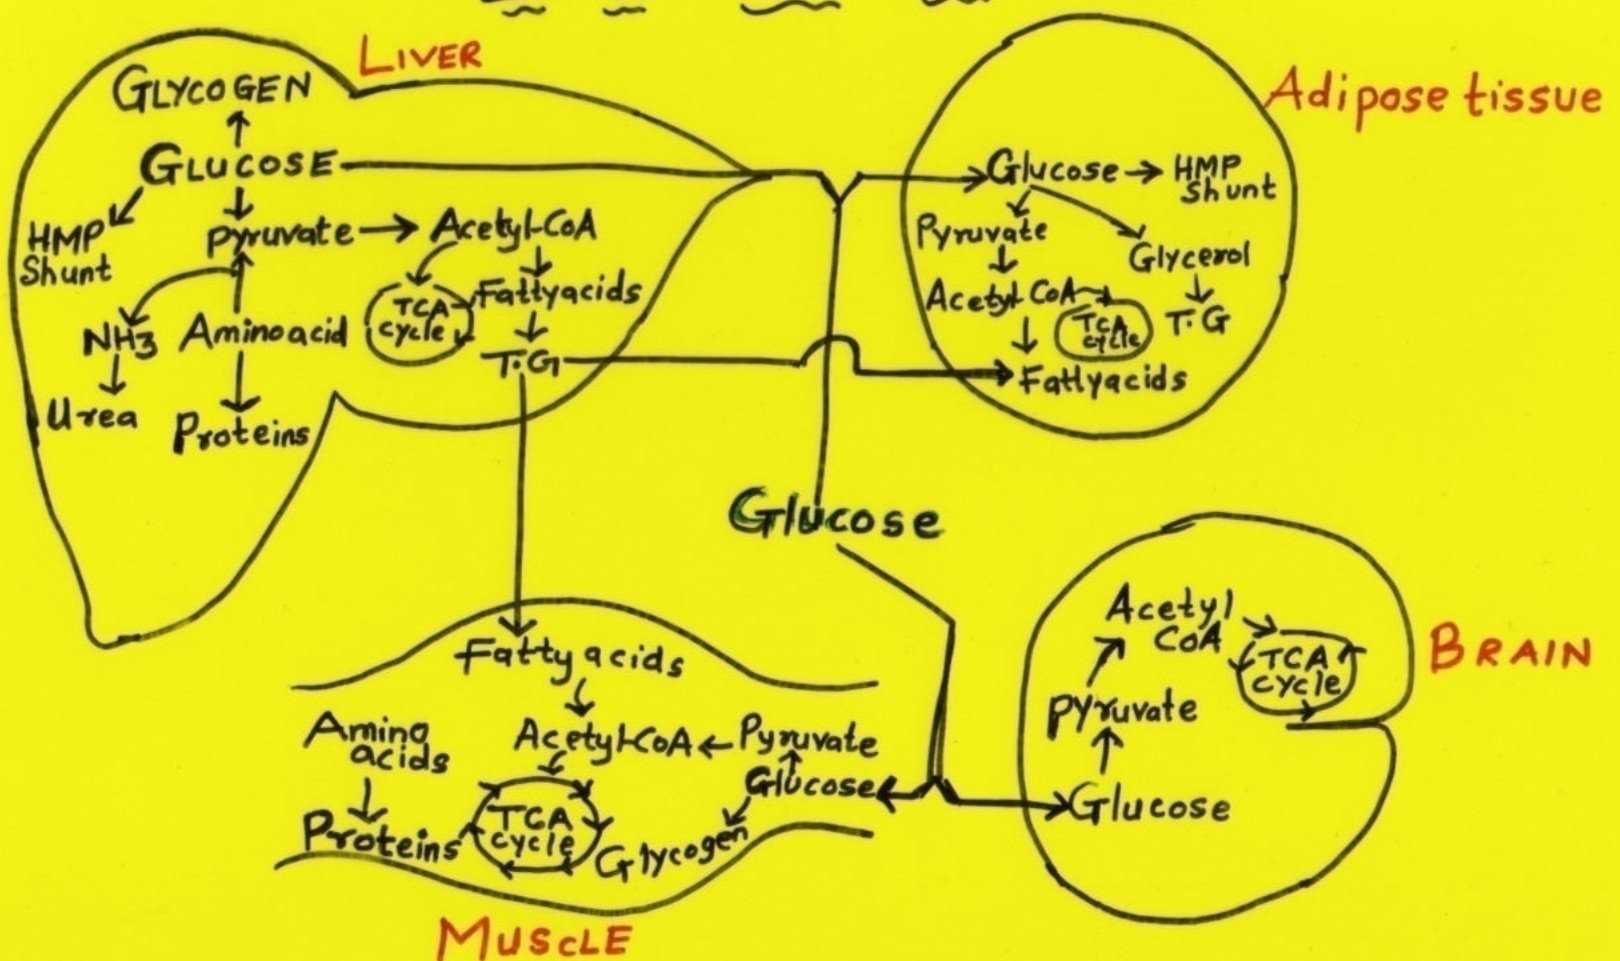 LIVER
GLYCOGEN
GLUCOSE
HMP
Shunt
Pyruvate
Acetyl-CoA
TCA
cycle
Fattyacids
NH3
Aminoacid
T.G
Urea
Proteins
Adipose tissue
Glucose
HMP
Shunt
Pyruvate
Glycerol
Acetyl-CoA
TCA
cycle
T.G
Fattyacids
Glucose
Fatty acids
Amino
acids
Acetyl-CoA
Pyruvate
Glucose
Proteins
TCA
cycle
Glycogen
MUSCLE
BRAIN
Acetyl
CoA
TCA
cycle
Pyruvate
Glucose